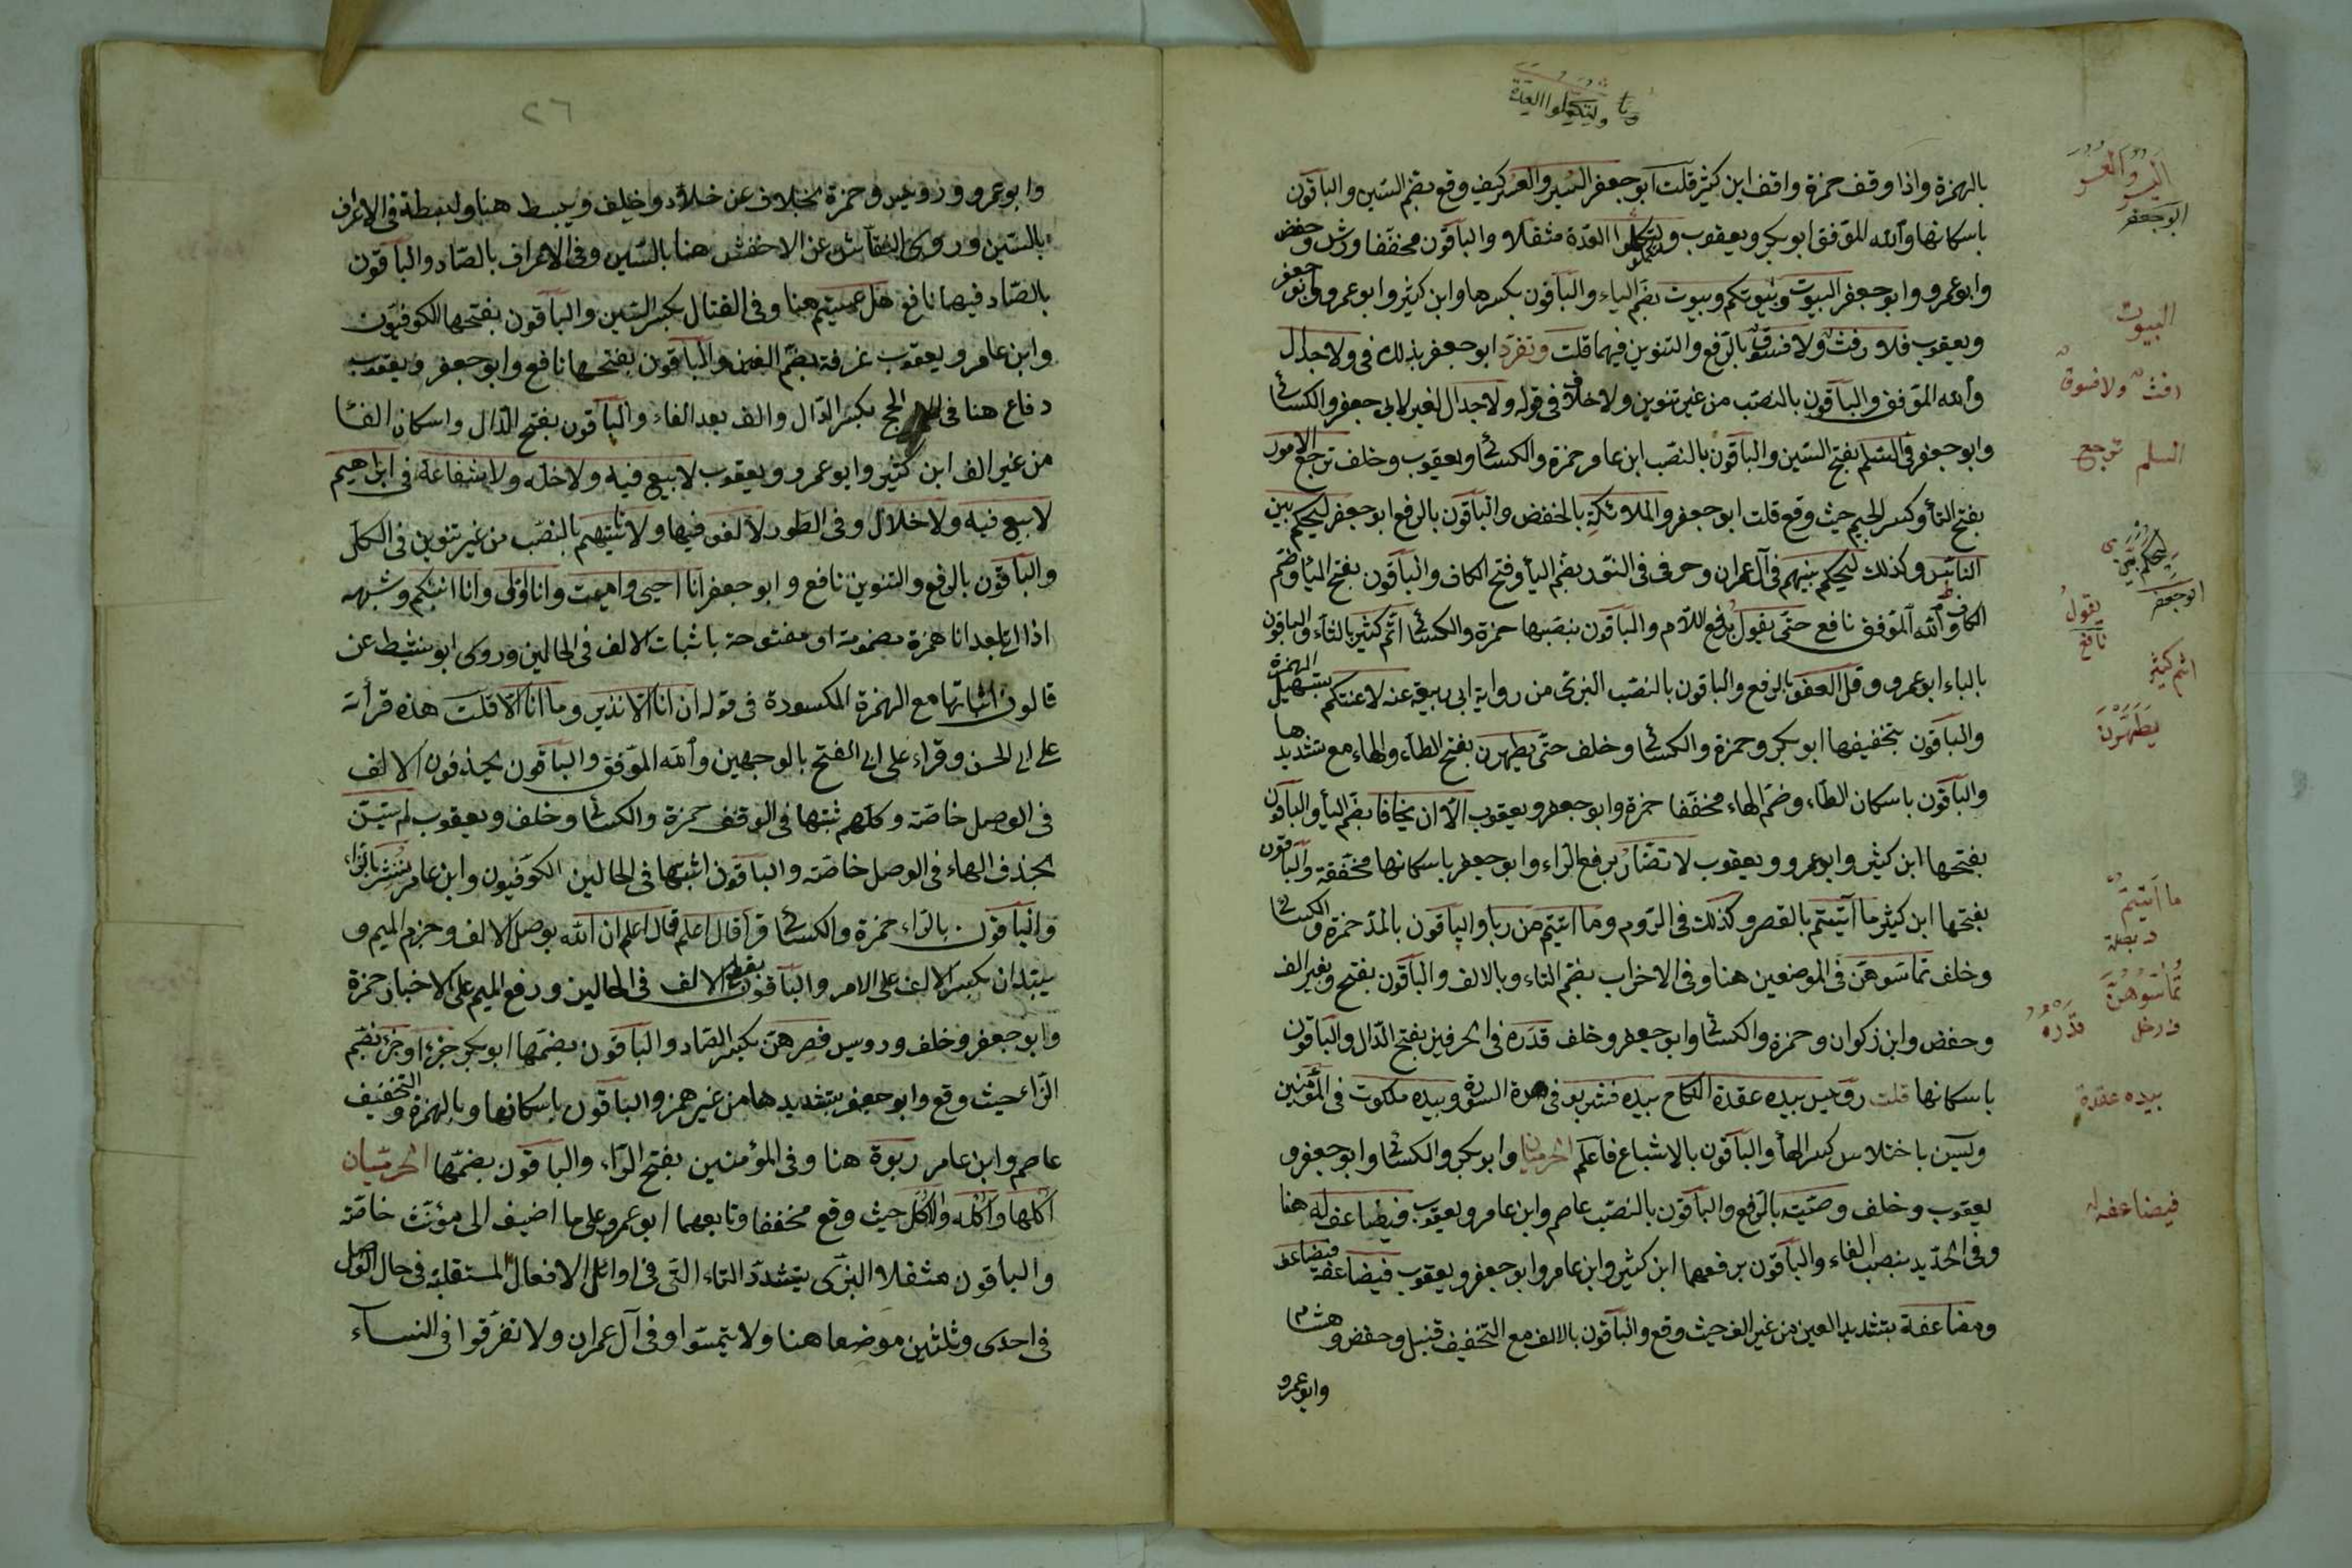 ولتكملوا العدة
بالهمزة واذا وقف حمزة وافق ابن كثير قلت ابو جعفر اليسر والعسر كيف وقع بضم السين والباقون
باسكانها والله الموفق ابو بكر ويعقوب ولتكملوا العدة مثقلا والباقون مخففا ورش وحفص
وابو عمرو وابو جعفر البيوت وبيوتكم وبيوت بضم الباء والباقون بكسرها وابن كثير وابو عمرو وابو جعفر
ويعقوب فلا رفث ولا فسوق بالرفع والتنوين فيهما قلت وتفرد ابو جعفر بذلك فى ولا جدال
والله الموفق والباقون بالنصب من غير تنوين ولا خلاف فى قوله ولا جدال لغير ابى جعفر والكسائى
وابو جعفر فى السلم بفتح السين والباقون بالنصب ابن عامر حمزة والكسائى ويعقوب وخلف ترجع الامور
بفتح التاء وكسر الجيم حيث وقع قلت ابو جعفر والملائكة بالخفض والباقون بالرفع ابو جعفر ليحكم بين
الناس وكذلك ليحكم بينهم فى آل عمران وحرفى فى النور بضم الياء وفتح الكاف والباقون بفتح الياء وضم
الكاف والله الموفق نافع حتى يقول برفع اللام والباقون بنصبها حمزة والكسائى اثم كثير بالثاء والباقون
بالباء ابو عمرو وقل العفو بالرفع والباقون بالنصب البزى من رواية ابى ربيعة عنه لاعنتكم بتسهيل الهمزة
والباقون بتخفيفها ابو بكر وحمزة والكسائى وخلف حتى يطهرن بفتح الطاء والهاء مع تشديدها
والباقون باسكان الطاء وضم الهاء مخففا حمزة وابو جعفر ويعقوب الا ان يخافا بضم الياء والباقون
بفتحها ابن كثير وابو عمرو ويعقوب لا تضار برفع الراء وابو جعفر باسكانها مخففة والباقون
بفتحها ابن كثير ما آتيتم بالقصر وكذلك فى الروم وما اتيتم من ربا والباقون بالمد حمزة والكسائى
وخلف تماسوهن فى الموضعين هنا وفى الاحزاب بضم التاء وبالالف والباقون بفتح وبغير الف
وحفص وابن ذكوان وحمزة والكسائى وابو جعفر وخلف قدره فى الحرفين بفتح الدال والباقون
باسكانها قلت رويس بيده عقدة النكاح بيده فشربو فى هذه السورة وبيده ملكوت فى المؤمنين
ويسين باختلاس كسر الهاء والباقون بالاشباع فاعلم الحرميان وابو بكر والكسائى وابو جعفر و
يعقوب وخلف وصية بالرفع والباقون بالنصب عاصم وابن عامر ويعقوب فيضاعفه له هنا
وفى الحديد بنصب الفاء والباقون برفعهما ابن كثير وابن عامر وابو جعفر ويعقوب فيضاعفه فيضاعف
ومضاعفة بتشديد العين من غير الف حيث وقع والباقون بالالف مع التخفيف قنبل وحفص وهشام
وابو عمرو
اليسر والعسر
ابو جعفر
البيوت
رفث ولا فسوق
السلم ترجع
ليحكم بين
ابو جعفر
يقول
نافع
اثم كثير
يطهرن
ما آتيتم
تماسوهن
قدره
بيده عقدة
فيضاعفه له
٢٦
وابو عمرو ورويس وحمزة بخلاف عن خلاد وخلف ويبسط هنا وبسطة فى الاعراف
بالسين وروى النقاش عن الاخفش هنا بالسين وفى الاعراف بالصاد والباقون
بالصاد فيهما نافع هل عسيتم هنا وفى القتال بكسر السين والباقون بفتحها الكوفيون
وابن عامر ويعقوب غرفة بضم الغين والباقون بفتحها نافع وابو جعفر ويعقوب
دفاع هنا فى الحج بكسر الدال والف بعد الفاء والباقون بفتح الدال واسكان الفا
من غير الف ابن كثير وابو عمرو ويعقوب لا بيع فيه ولا خلة ولا شفاعة فى ابراهيم
لا بيع فيه ولا خلال وفى الطور لا لغو فيها ولا تاثيم بالنصب من غير تنوين فى الكل
والباقون بالرفع والتنوين نافع وابو جعفر انا احيى واميت وانا اول وانا انبئكم وشبهه
اذا اتى بعد انا همزة مضمومة او مفتوحة باثبات الالف فى الحالين وروى ابو نشيط عن
قالون اثباتها مع الهمزة المكسورة فى قوله ان انا الا نذير وما انا الا قلت هذه قرأته
على ابى الحسن وقراء على ابى الفتح بالوجهين والله الموفق والباقون يحذفون الالف
فى الوصل خاصة وكلهم ثبتها فى الوقف حمزة والكسائى وخلف ويعقوب لم يتسن
بحذف الهاء فى الوصل خاصة والباقون اثبتها فى الحالين الكوفيون وابن عامر ننشزها بالزاء
والباقون بالراء حمزة والكسائى قرأ قال اعلم قال اعلم ان الله بوصل الالف وجزم الميم و
يبتدان بكسر الالف على الامر والباقون بقطع الالف فى الحالين ورفع الميم على الاخبار حمزة
وابو جعفر وخلف ورويس فصرهن بكسر الصاد والباقون بضمها ابو بكر جزءا وجزء بضم
الزاء حيث وقع وابو جعفر بتشديدها من غير همز والباقون باسكانها وبالهمزة والتخفيف
عاصم وابن عامر ربوة هنا وفى المؤمنين بفتح الراء والباقون بضمها الحرميان
اكلها واكله والاكل حيث وقع مخففا وتابعهما ابو عمرو على ما اضيف الى مؤنث خاصة
والباقون مثقلا البزى يتشدد التاء التى فى اوائل الافعال المستقبلة فى حال الوصل
فى احدى وثلثين موضعا هنا ولا تيمموا وفى آل عمران ولا تفرقوا فى النساء